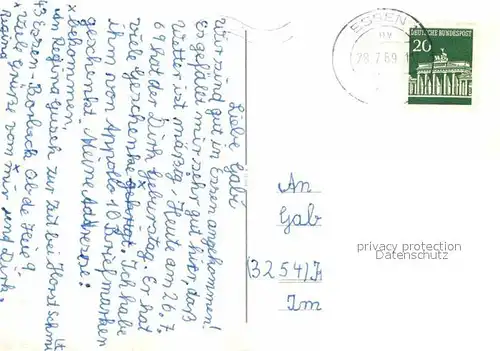 Liebe Gabi
Wir sind gut in Essen angekommen!
Es gefällt mir sehr gut hier, das
Wetter ist mäßig. Heut am 26.7.
69 hat der Dirk Geburtstag. Er hat
viele Geschenke gekriegt. Ich habe
ihm von Appollo 10 Briefmarken
geschenkt. Meine Adresse:
bekommen,
An Regina zur Zeit bei Horst Schmi
43 Essen-Borbeck
Viele Grüße von mir und Dirk.
Regina
ESSEN
DEUTSCHE BUNDESPOST
20
An
Gab
(3254)
Im
privacy protection
Datenschutz